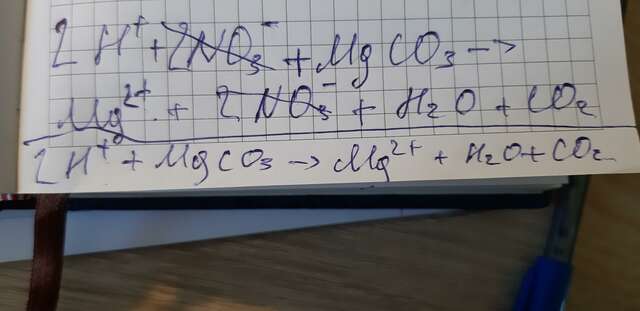 2H⁺ + 2NO₃⁻ + MgCO₃ →
Mg²⁺ + 2NO₃⁻ + H₂O + CO₂
2H⁺ + MgCO₃ → Mg²⁺ + H₂O + CO₂